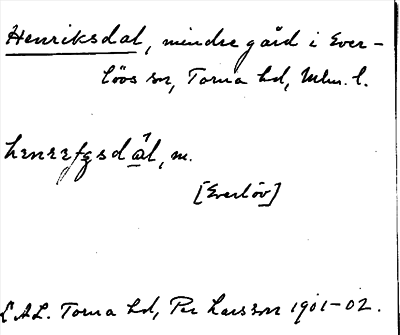 Henriksdal, mindre gård i Ever-
löos sn, Torna hd, Mlm. l.
m.
[Everlöv]
L.A.L. Torna hd, Per Larsson 1901-02.